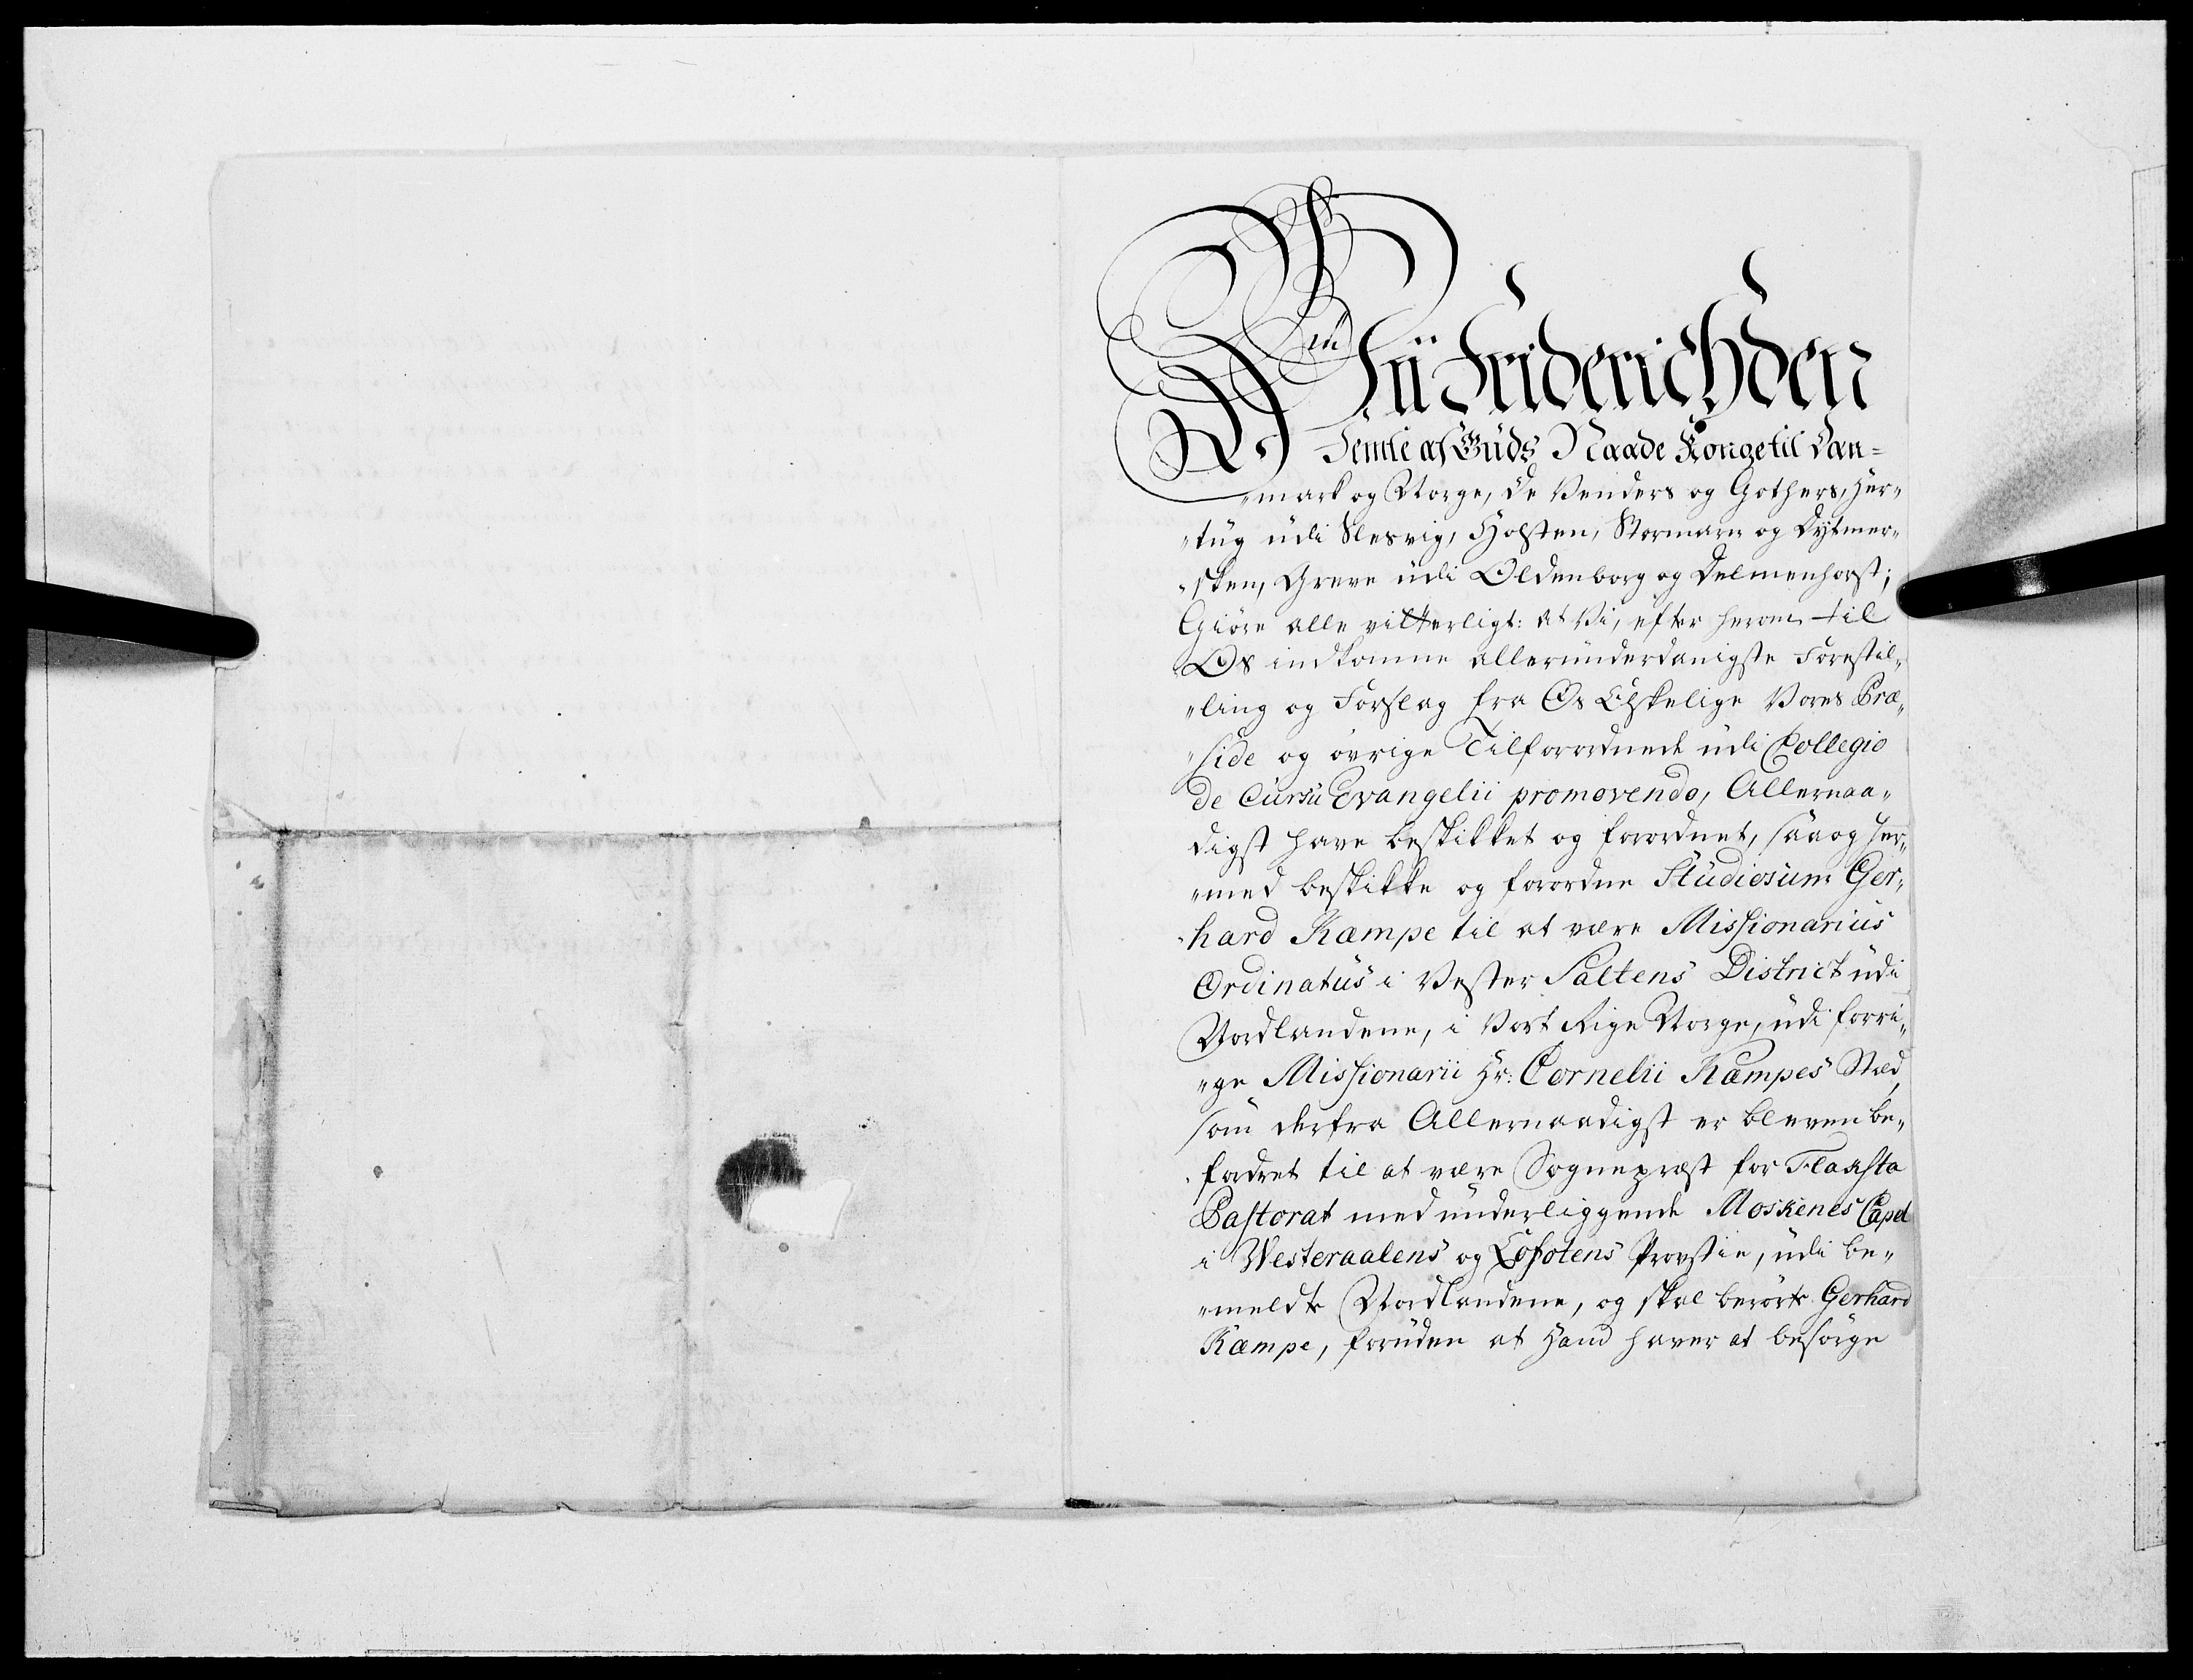 Wii Friderich den
Femte af Guds Naade Konge til Dan=
„mark og Norge, de Venders og Gothers, Her„
„tug udi Slesvig, Holsten, Stormarn og Dytmer„
„sken, Greve udi Oldenborg og Delmenhorst;
Giöre alle vitterligt: At Vi, efter herom til
Os indkomne allerunderdanigste Forestil„
„ling og Forslag fra Os Elskelige Vores Præ„
„side og övrige Tilforordnede udi Collegio
de Cursu Evangelii promovendo, Allernaa„
digst have beskikket og forordnet, saa og her„
„med beskikke og forordne Studiosum Ger„
„hard Kæmpe til at være Missionarius
Ordinatus i Vester Saltens District udi
Nordlandene, i Vort Rige Norge, udi forri„
„ge Missionarii Hr: Cornelii Kæmpes Stæd,
som derfra Allernaadigst er bleven be„
„fordret til at være Sognepræst for Flagsta
Pastorat med underliggende Moskenes Capel
i Westeraalens og Lofotens Provstie, udi be„
„meldte Nordlandene, og skal berörte Gerhard
Kæmpe, foruden at Hand haver at besörge